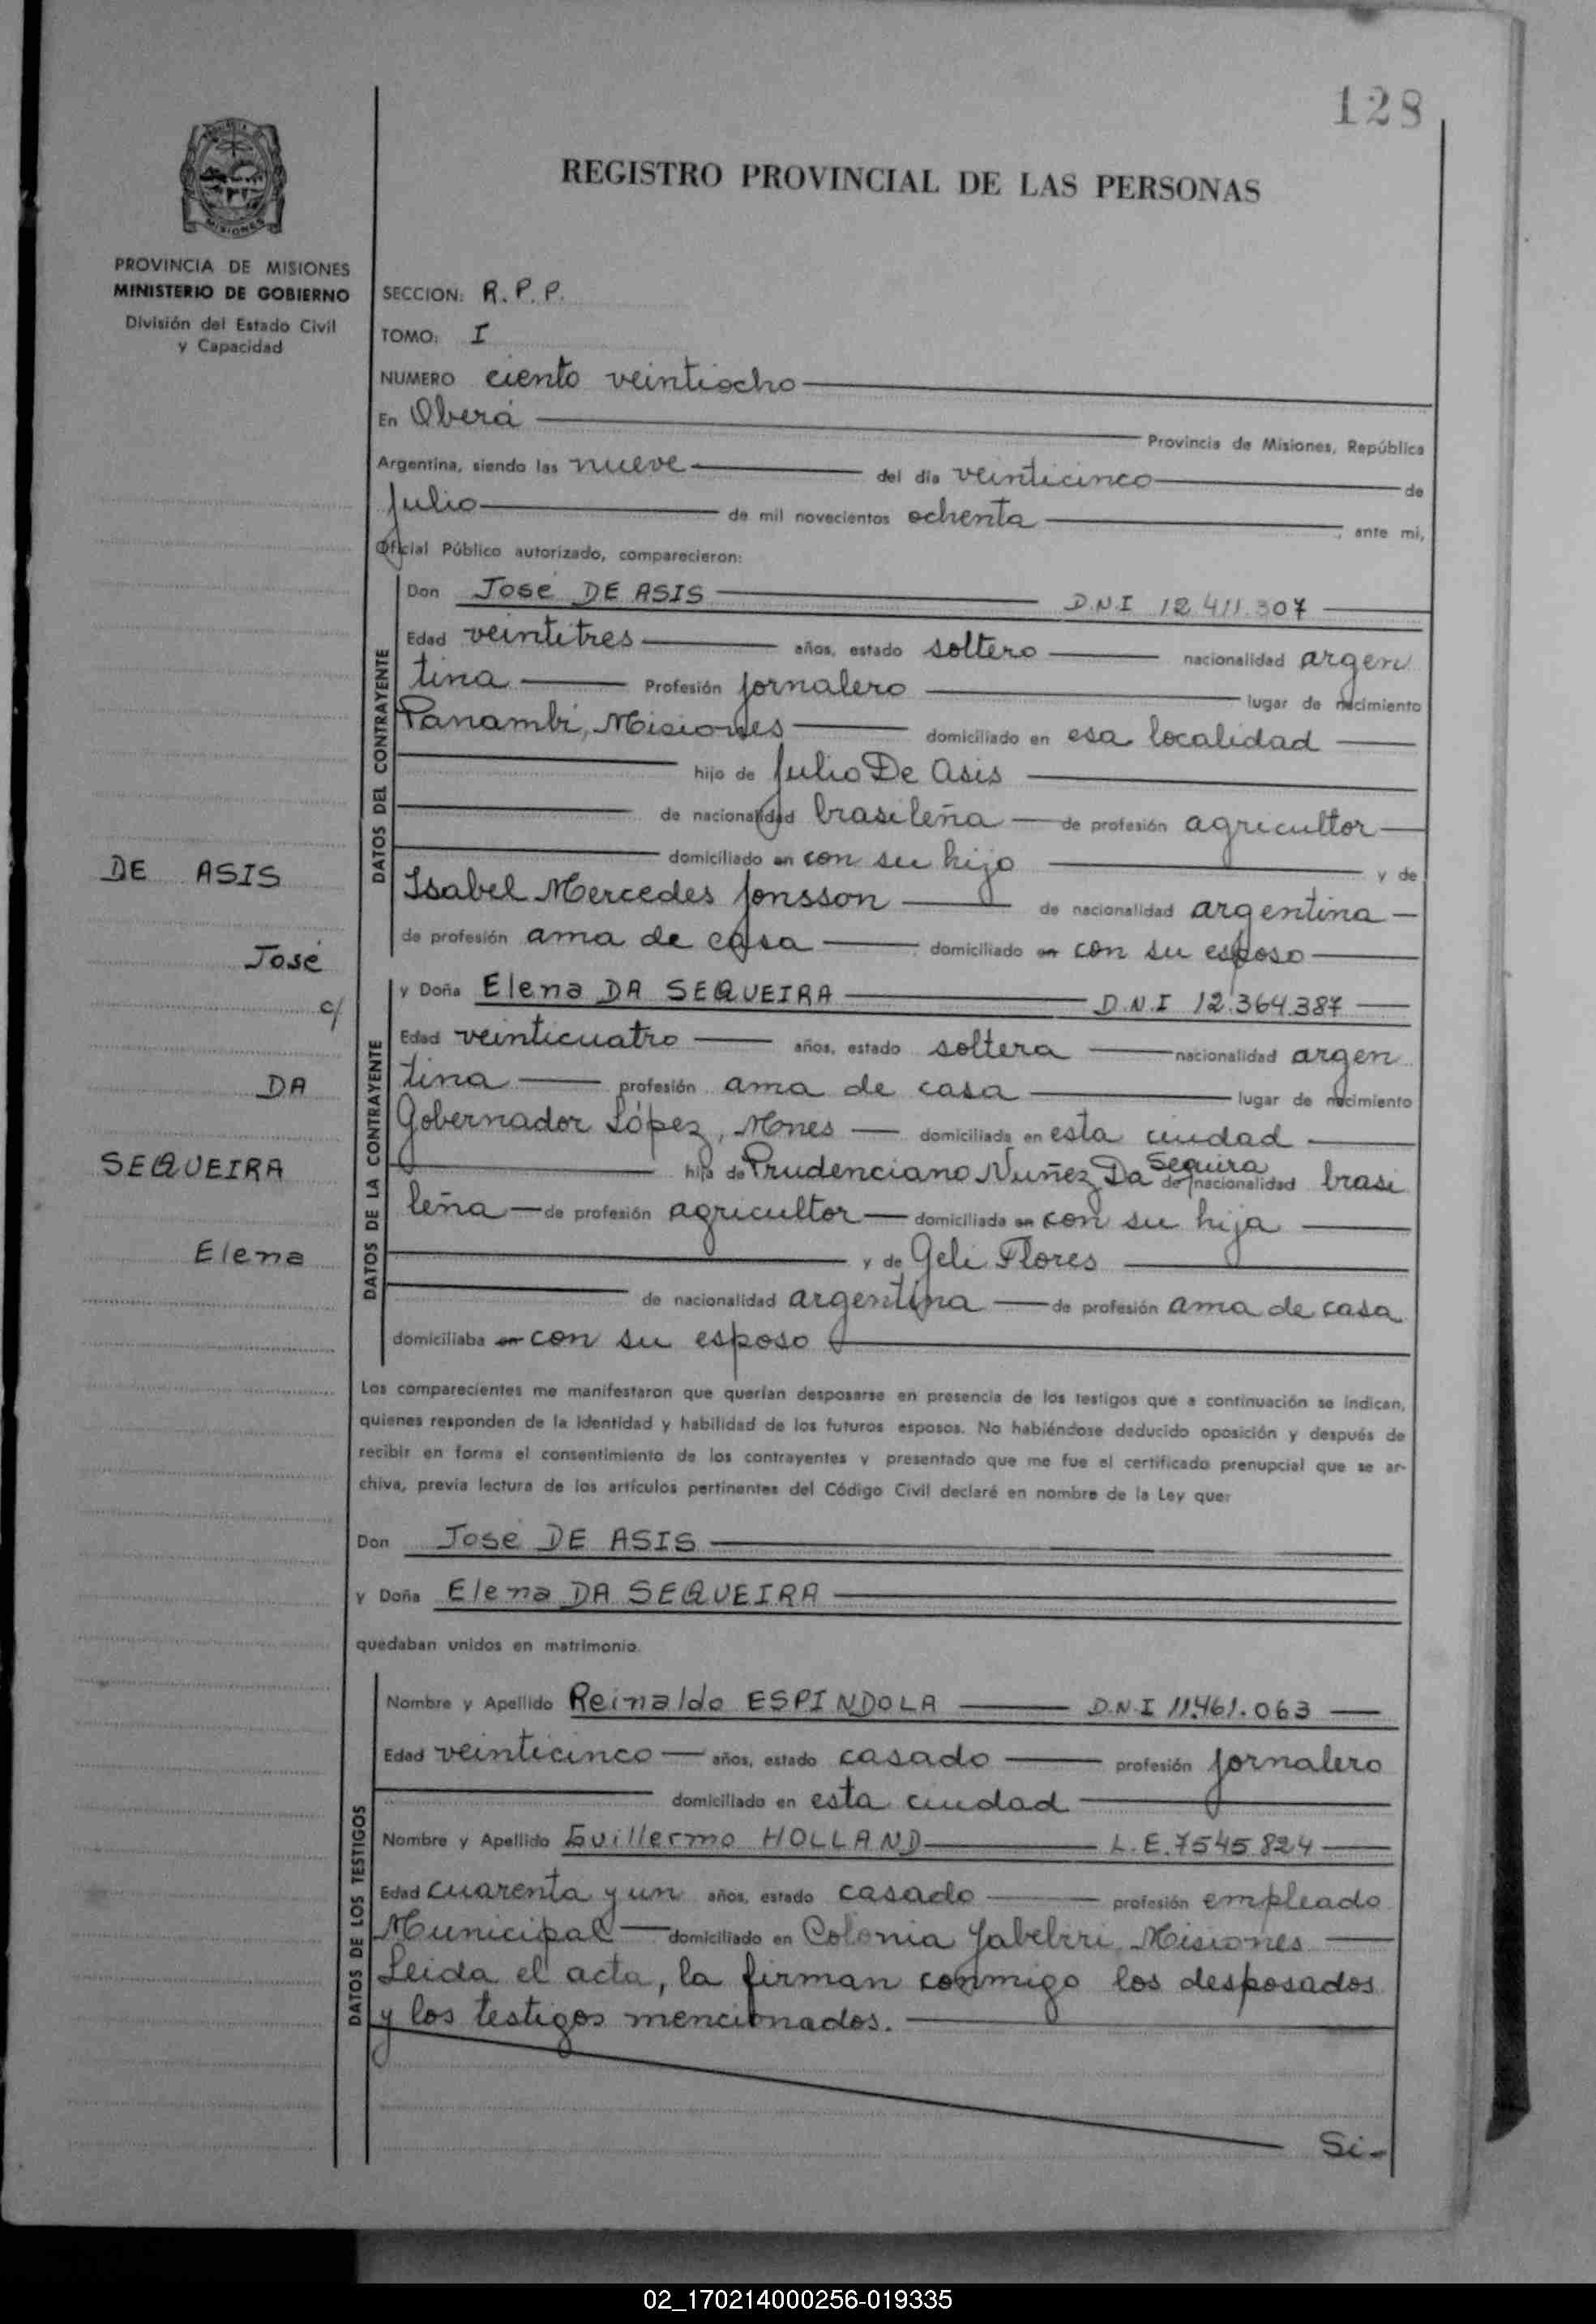 128
REGISTRO PROVINCIAL DE LAS PERSONAS
MISIONES
PROVINCIA DE MISIONES
MINISTERIO DE GOBIERNO
División del Estado Civil
y Capacidad
DE ASIS
José
c/
DA
SEQUEIRA
Elena
SECCION: R.P.P.
TOMO: I
NUMERO ciento veintiocho
En Oberá Provincia de Misiones, República
Argentina, siendo las nueve del día veinticinco de
Julio de mil novecientos ochenta, ante mi,
Oficial Público autorizado, comparecieron:
DATOS DEL CONTRAYENTE
Don José DE ASIS D.N.I 12.411.307
Edad veintitres años, estado soltero nacionalidad argen
tina Profesión jornalero lugar de nacimiento
Panambí, Misiones domiciliado en esa localidad
hijo de Julio De Asis
de nacionalidad brasileña de profesión agricultor
domiciliado en con su hijo y de
Isabel Mercedes Jonsson de nacionalidad argentina
de profesión ama de casa domiciliado en con su esposo
DATOS DE LA CONTRAYENTE
y Doña Elena DA SEQUEIRA D.N.I 12.364.387
Edad veinticuatro años, estado soltera nacionalidad argen
tina profesión ama de casa lugar de nacimiento
Gobernador López, Mnes domiciliada en esta ciudad
hija de Prudenciano Nuñez Da Sequira de nacionalidad brasi
leña de profesión agricultor domiciliada en con su hija
y de Geli Flores
de nacionalidad argentina de profesión ama de casa
domiciliaba en con su esposo
Los comparecientes me manifestaron que querían desposarse en presencia de los testigos que a continuación se indican,
quienes responden de la identidad y habilidad de los futuros esposos. No habiéndose deducido oposición y después de
recibir en forma el consentimiento de los contrayentes y presentado que me fue el certificado prenupcial que se ar-
chiva, previa lectura de los artículos pertinentes del Código Civil declaré en nombre de la Ley que:
Don José DE ASIS
y Doña Elena DA SEQUEIRA
quedaban unidos en matrimonio.
DATOS DE LOS TESTIGOS
Nombre y Apellido Reinaldo ESPINDOLA D.N.I 11.461.063
Edad veinticinco años, estado casado profesión jornalero
domiciliado en esta ciudad
Nombre y Apellido Guillermo HOLLAND L.E. 7545824
Edad cuarenta y un años, estado casado profesión empleado
Municipal domiciliado en Colonia Yabebiri, Misiones
Leida el acta, la firman conmigo los desposados
y los testigos mencionados.
Si-
02_170214000256-019335